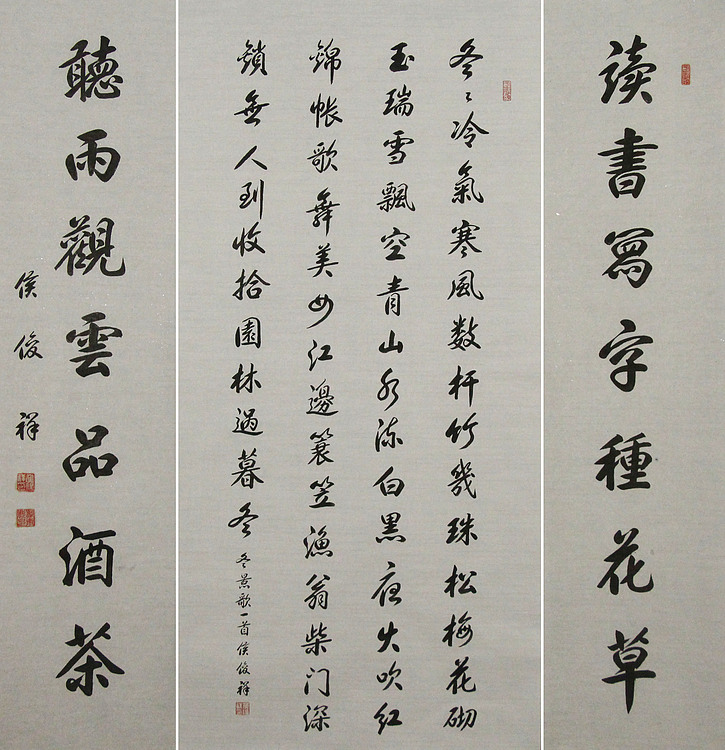 读書寫字種花草
冬冬冷氣寒風数杆竹幾珠松梅花砌
玉瑞雪飄空青山水流白黑夜火吹红
錦帳歌舞美女江邊蓑笠漁翁柴门深
鎖無人到收拾園林過暮冬
冬景歌一首侯俊祥
聽雨觀雲品酒茶
侯俊祥